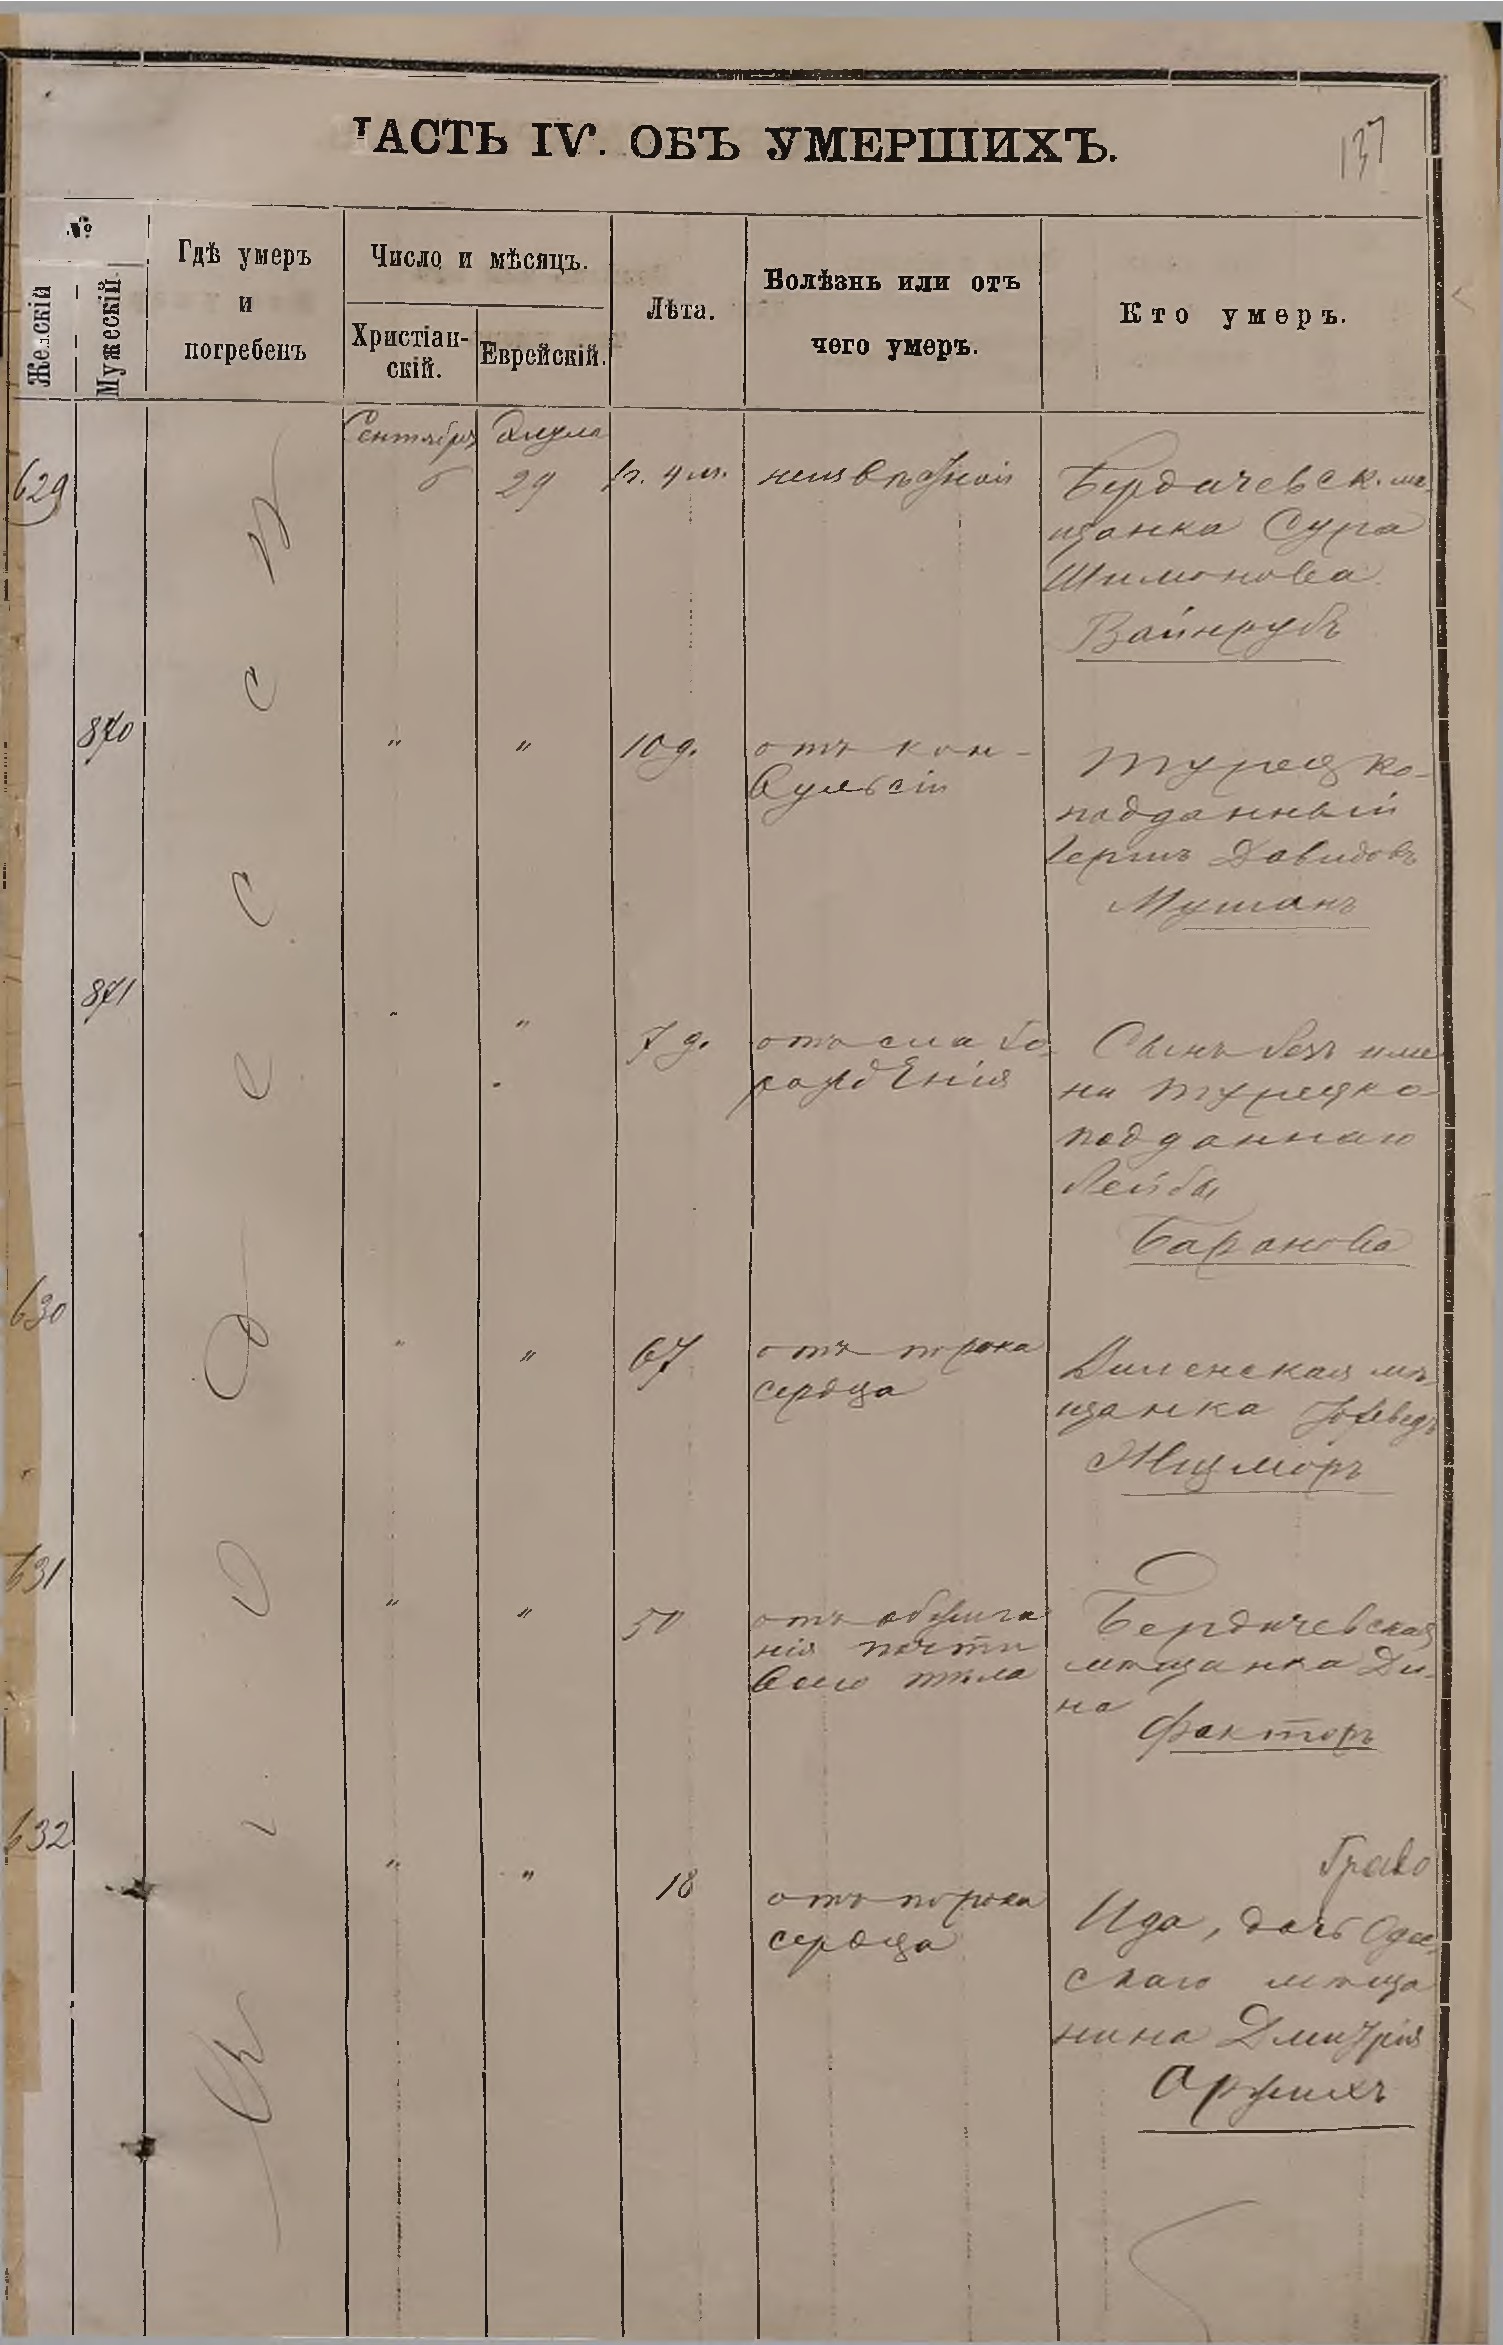 ЧАСТЬ IV. ОБЪ УМЕРШИХЪ.
137
№
Женскій
Мужескій.
Гдѣ умеръ
и
погребенъ
Число и мѣсяцъ.
Христіан-
скій.
Еврейскій.
Лѣта.
Болѣзнь или отъ
чего умеръ.
Кто умеръ.
Сентября Элула
629
6 29 1г. 4 м. неизвѣстной
Бердичевск. мѣ-
щанка Сура
Шимонова
Вайнрубъ
870
" " 10 д. отъ кон-
вульсіи
Турецко-
подданный
Гершъ Давидовъ
Мушанъ
871
" " 7 д. отъ слабо-
рожденія
Сынъ безъ име
ни Турецко-
подданнаго
Лейбы
Баранова
630
" " 67 отъ порока
сердца
Виленская мѣ-
щанка Іохеведъ
Жицморъ
631
" " 50 отъ обжига
нія почти
всего тѣла
Бердичевская
мѣщанка Ди-
на
Факторъ
632
" " 18 отъ порока
сердца
Ида, дочь Одес-
скаго мѣща
нина Дмитрія
Оржихъ
Въ Одессѣ